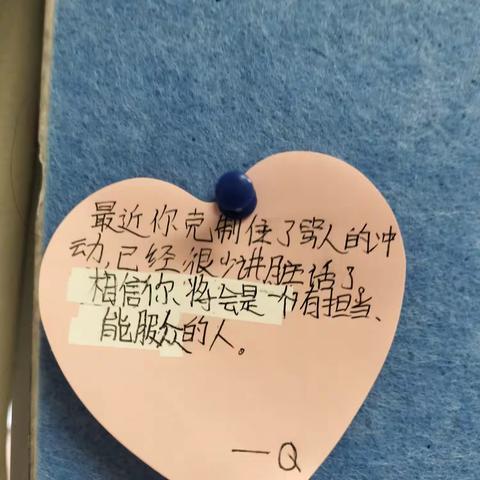 最近你克制住了穷人的冲
动,已经很少讲脏话了。
相信你、将会是一个有担当、
能服众的人。
—Q